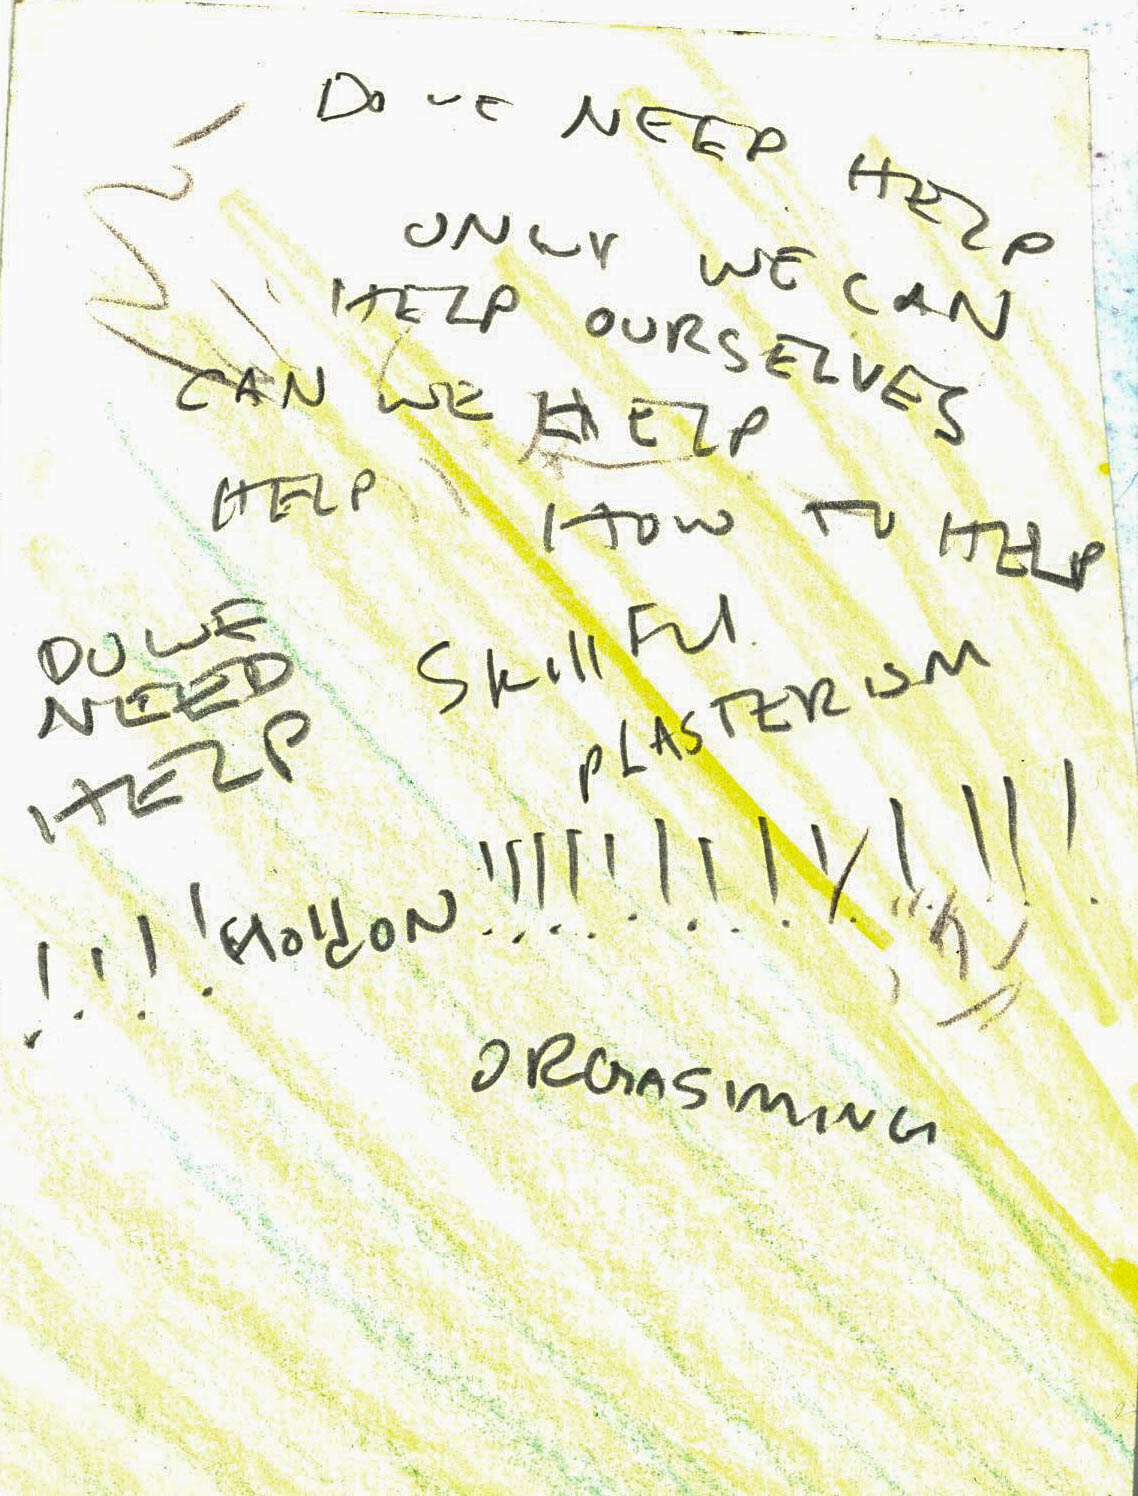 Do we NEED HELP
ONLY WE CAN
HELP OURSELVES
CAN WE HELP
HELP HOW TO HELP
DO WE
NEED
HELP
SkillFul
PLASTERISM
!!!!!!!!!!!!!
!!!! HOldON
ORGASIMING